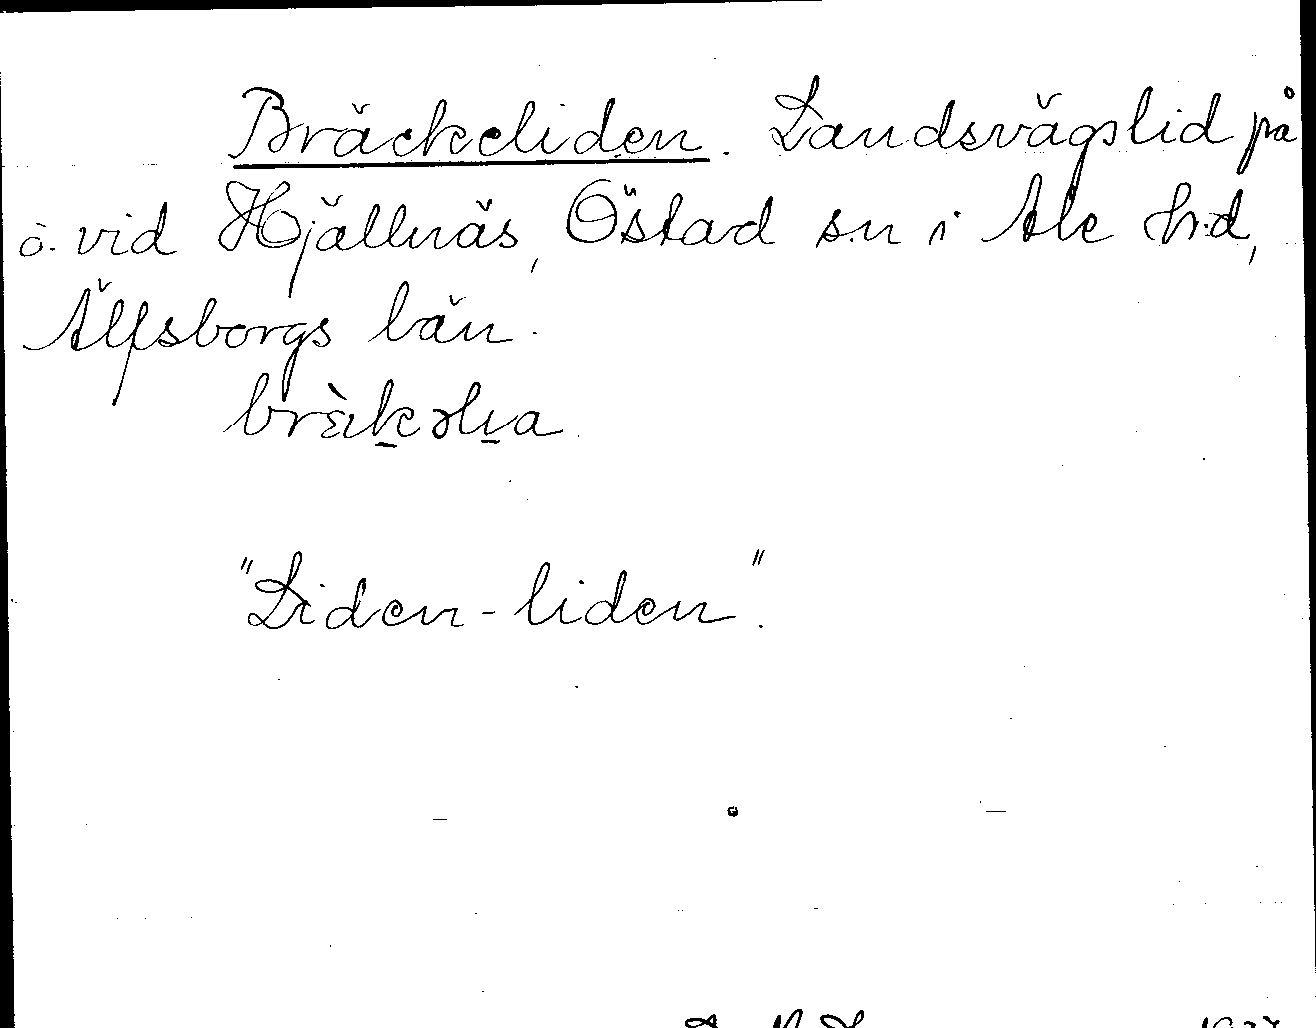 Bräckeliden. Landsvägslid på
ö. vid Hjällnäs, Östad s:n i Ale h:d,
Älfsborgs län.
"Liden-liden".